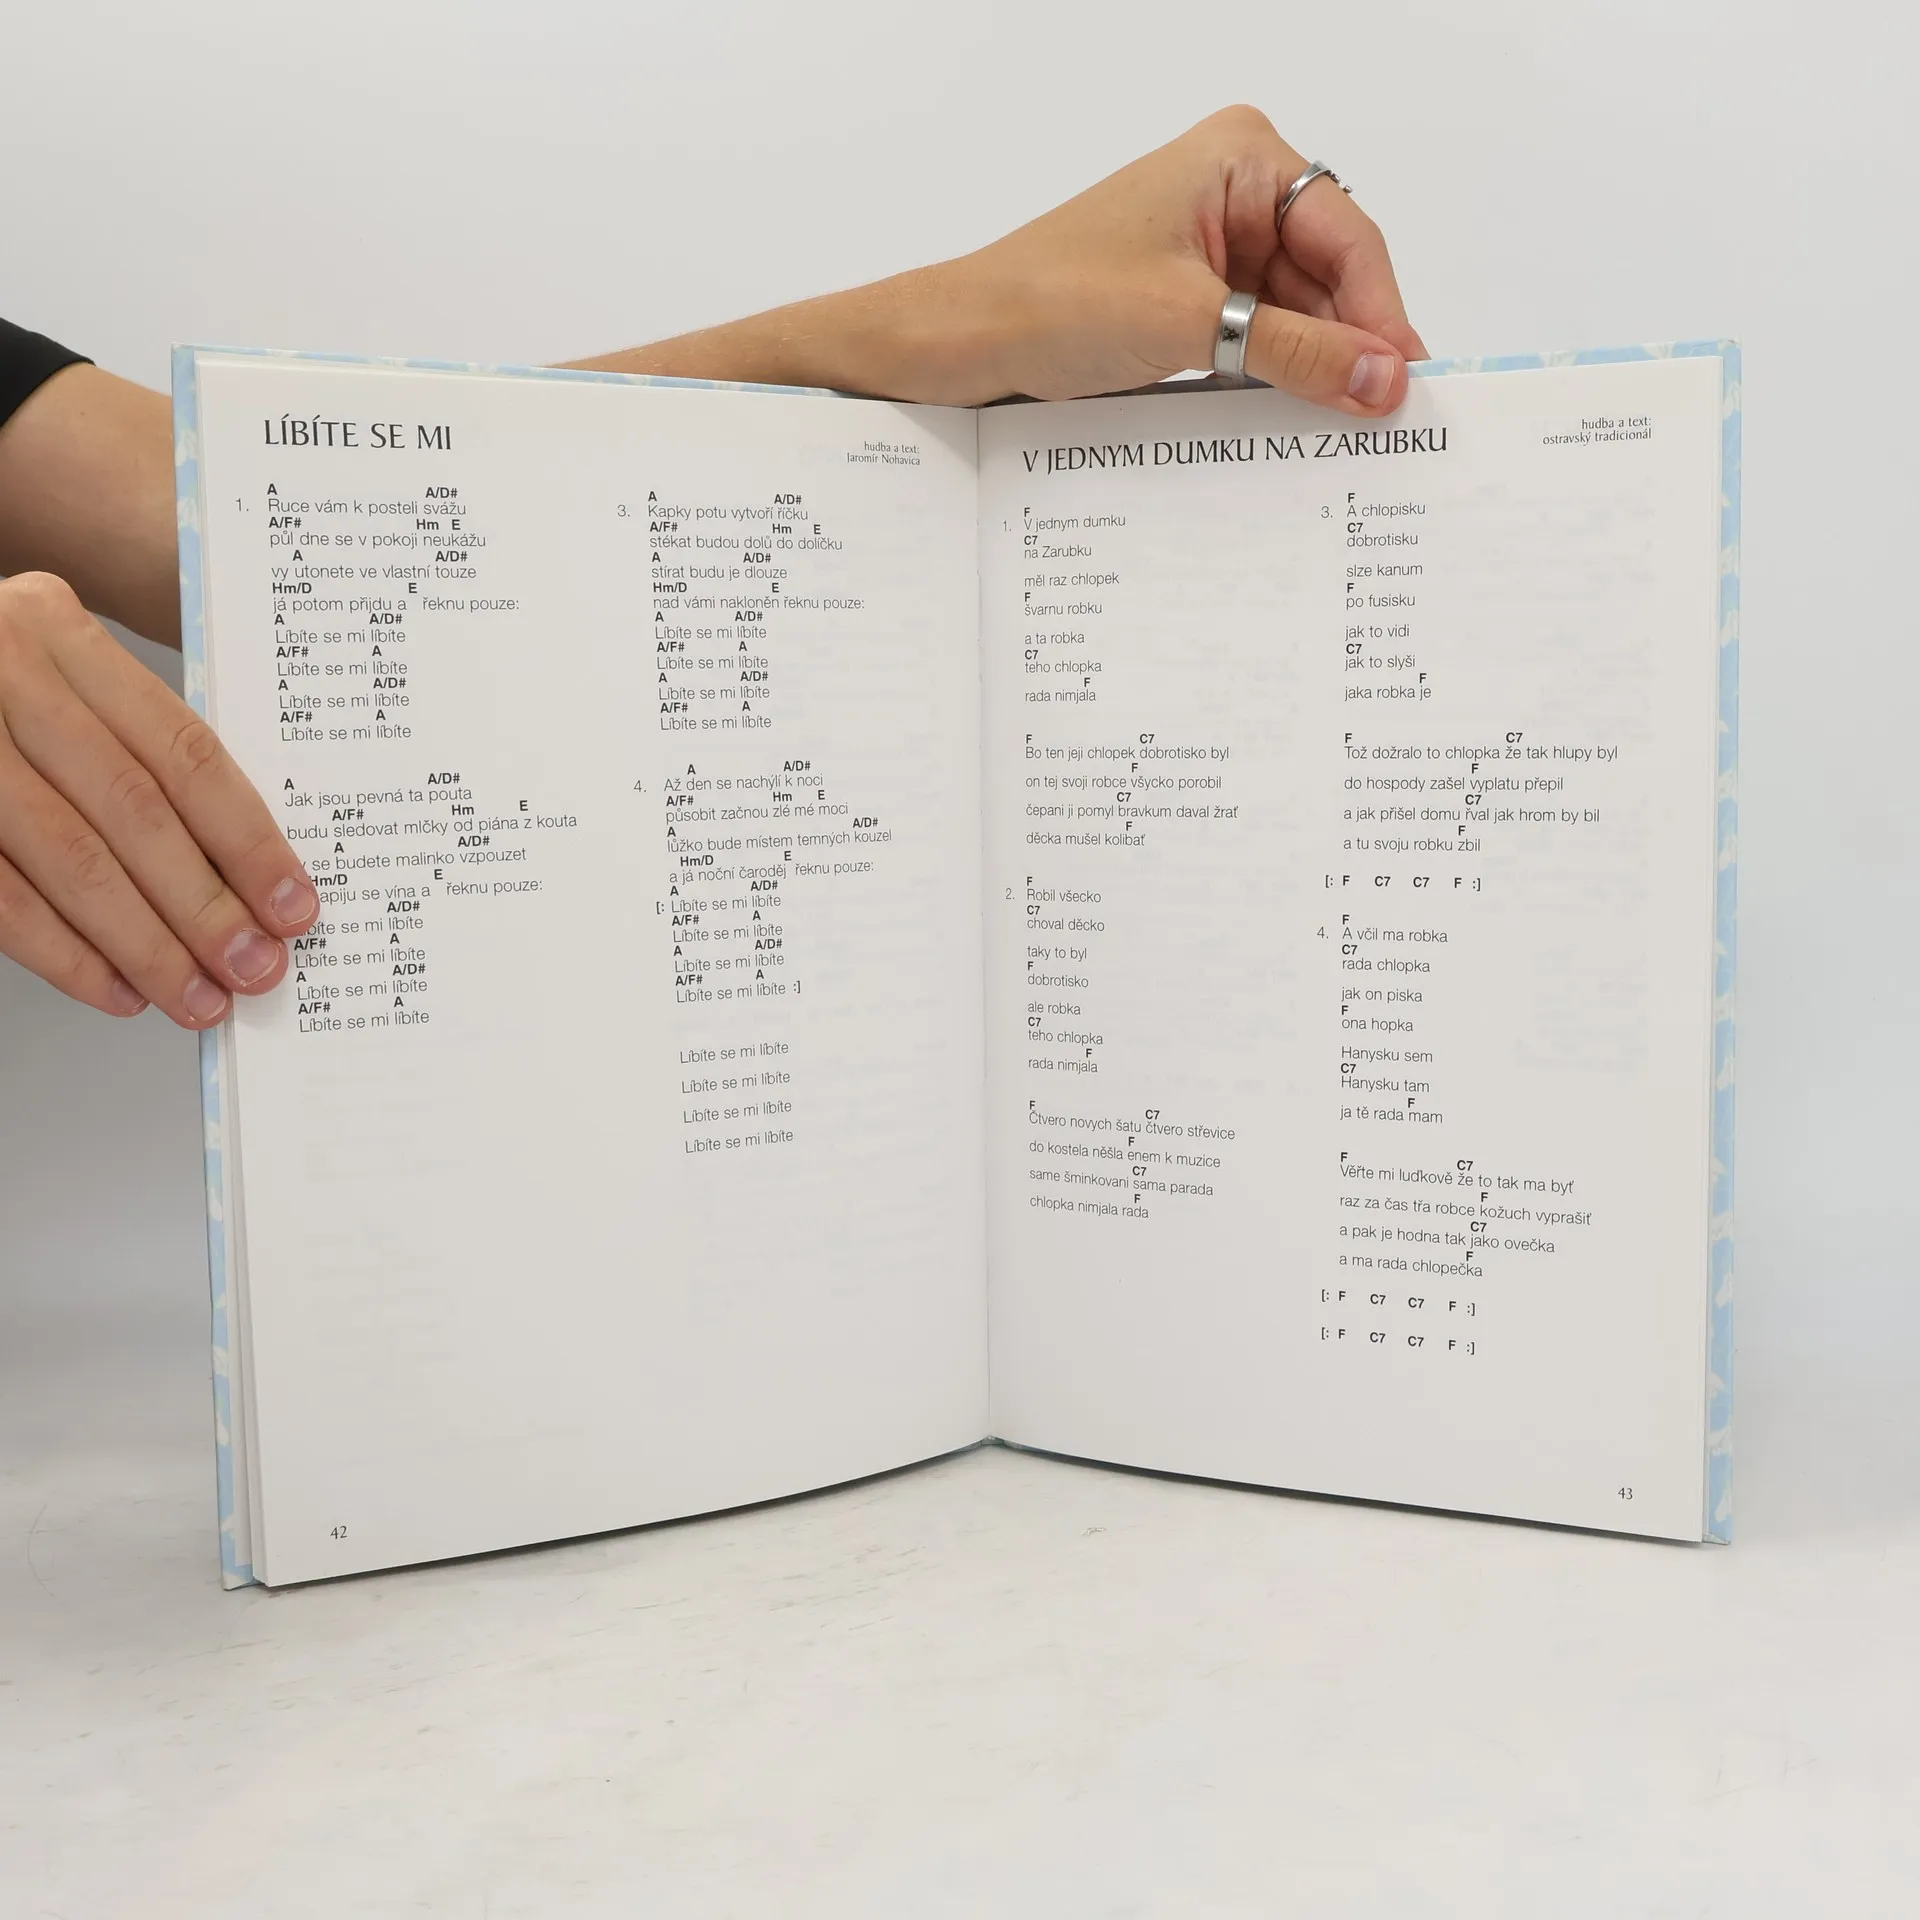 LÍBÍTE SE MI
hudba a text:
Jaromír Nohavica
A A/D#
1. Ruce vám k posteli svážu
A/F# Hm E
půl dne se v pokoji neukážu
A A/D#
vy utonete ve vlastní touze
Hm/D E
já potom přijdu a řeknu pouze:
A A/D#
Líbíte se mi líbíte
A/F# A
Líbíte se mi líbíte
A A/D#
Líbíte se mi líbíte
A/F# A
Líbíte se mi líbíte
A A/D#
Jak jsou pevná ta pouta
A/F# Hm E
budu sledovat mlčky od piána z kouta
A A/D#
se budete malinko vzpouzet
Hm/D E
se vína a řeknu pouze:
A/D#
se mi líbíte
A/F# A
Líbíte se mi líbíte
A A/D#
Líbíte se mi líbíte
A/F# A
Líbíte se mi líbíte
A A/D#
3. Kapky potu vytvoří říčku
A/F# Hm E
stékat budou dolů do dolíčku
A A/D#
stírat budu je dlouze
Hm/D E
nad vámi nakloněn řeknu pouze:
A A/D#
Líbíte se mi líbíte
A/F# A
Líbíte se mi líbíte
A A/D#
Líbíte se mi líbíte
A/F# A
Líbíte se mi líbíte
A A/D#
4. Až den se nachýlí k noci
A/F# Hm E
působit začnou zlé mé moci
A A/D#
lůžko bude místem temných kouzel
Hm/D E
a já noční čaroděj řeknu pouze:
A A/D#
[: Líbíte se mi líbíte
A/F# A
Líbíte se mi líbíte
A A/D#
Líbíte se mi líbíte
A/F# A
Líbíte se mi líbíte :]
Líbíte se mi líbíte
Líbíte se mi líbíte
Líbíte se mi líbíte
Líbíte se mi líbíte
42
V JEDNYM DUMKU NA ZARUBKU
hudba a text:
ostravský tradicionál
F
1. V jednym dumku
C7
na Zarubku
měl raz chlopek
F
švarnu robku
a ta robka
C7
teho chlopka
F
rada nimjala
F C7
Bo ten jeji chlopek dobrotisko byl
F
on tej svoji robce všycko porobil
C7
čepani ji pomyl bravkum daval žrať
F
děcka mušel kolibať
F
2. Robil všecko
C7
choval děcko
taky to byl
F
dobrotisko
ale robka
C7
teho chlopka
F
rada nimjala
F C7
Čtvero novych šatu čtvero střevice
F
do kostela něšla enem k muzice
C7
same šminkovani sama parada
F
chlopka nimjala rada
F
3. A chlopisku
C7
dobrotisku
slze kanum
F
po fusisku
jak to vidi
C7
jak to slyši
F
jaka robka je
F C7
Tož dožralo to chlopka že tak hlupy byl
F
do hospody zašel vyplatu přepil
C7
a jak přišel domu řval jak hrom by bil
F
a tu svoju robku zbil
[: F C7 C7 F :]
F
4. A včil ma robka
C7
rada chlopka
jak on piska
F
ona hopka
Hanysku sem
C7
Hanysku tam
F
ja tě rada mam
F C7
Věřte mi luďkově že to tak ma byť
F
raz za čas třa robce kožuch vyprašiť
C7
a pak je hodna tak jako ovečka
F
a ma rada chlopečka
[: F C7 C7 F :]
[: F C7 C7 F :]
43